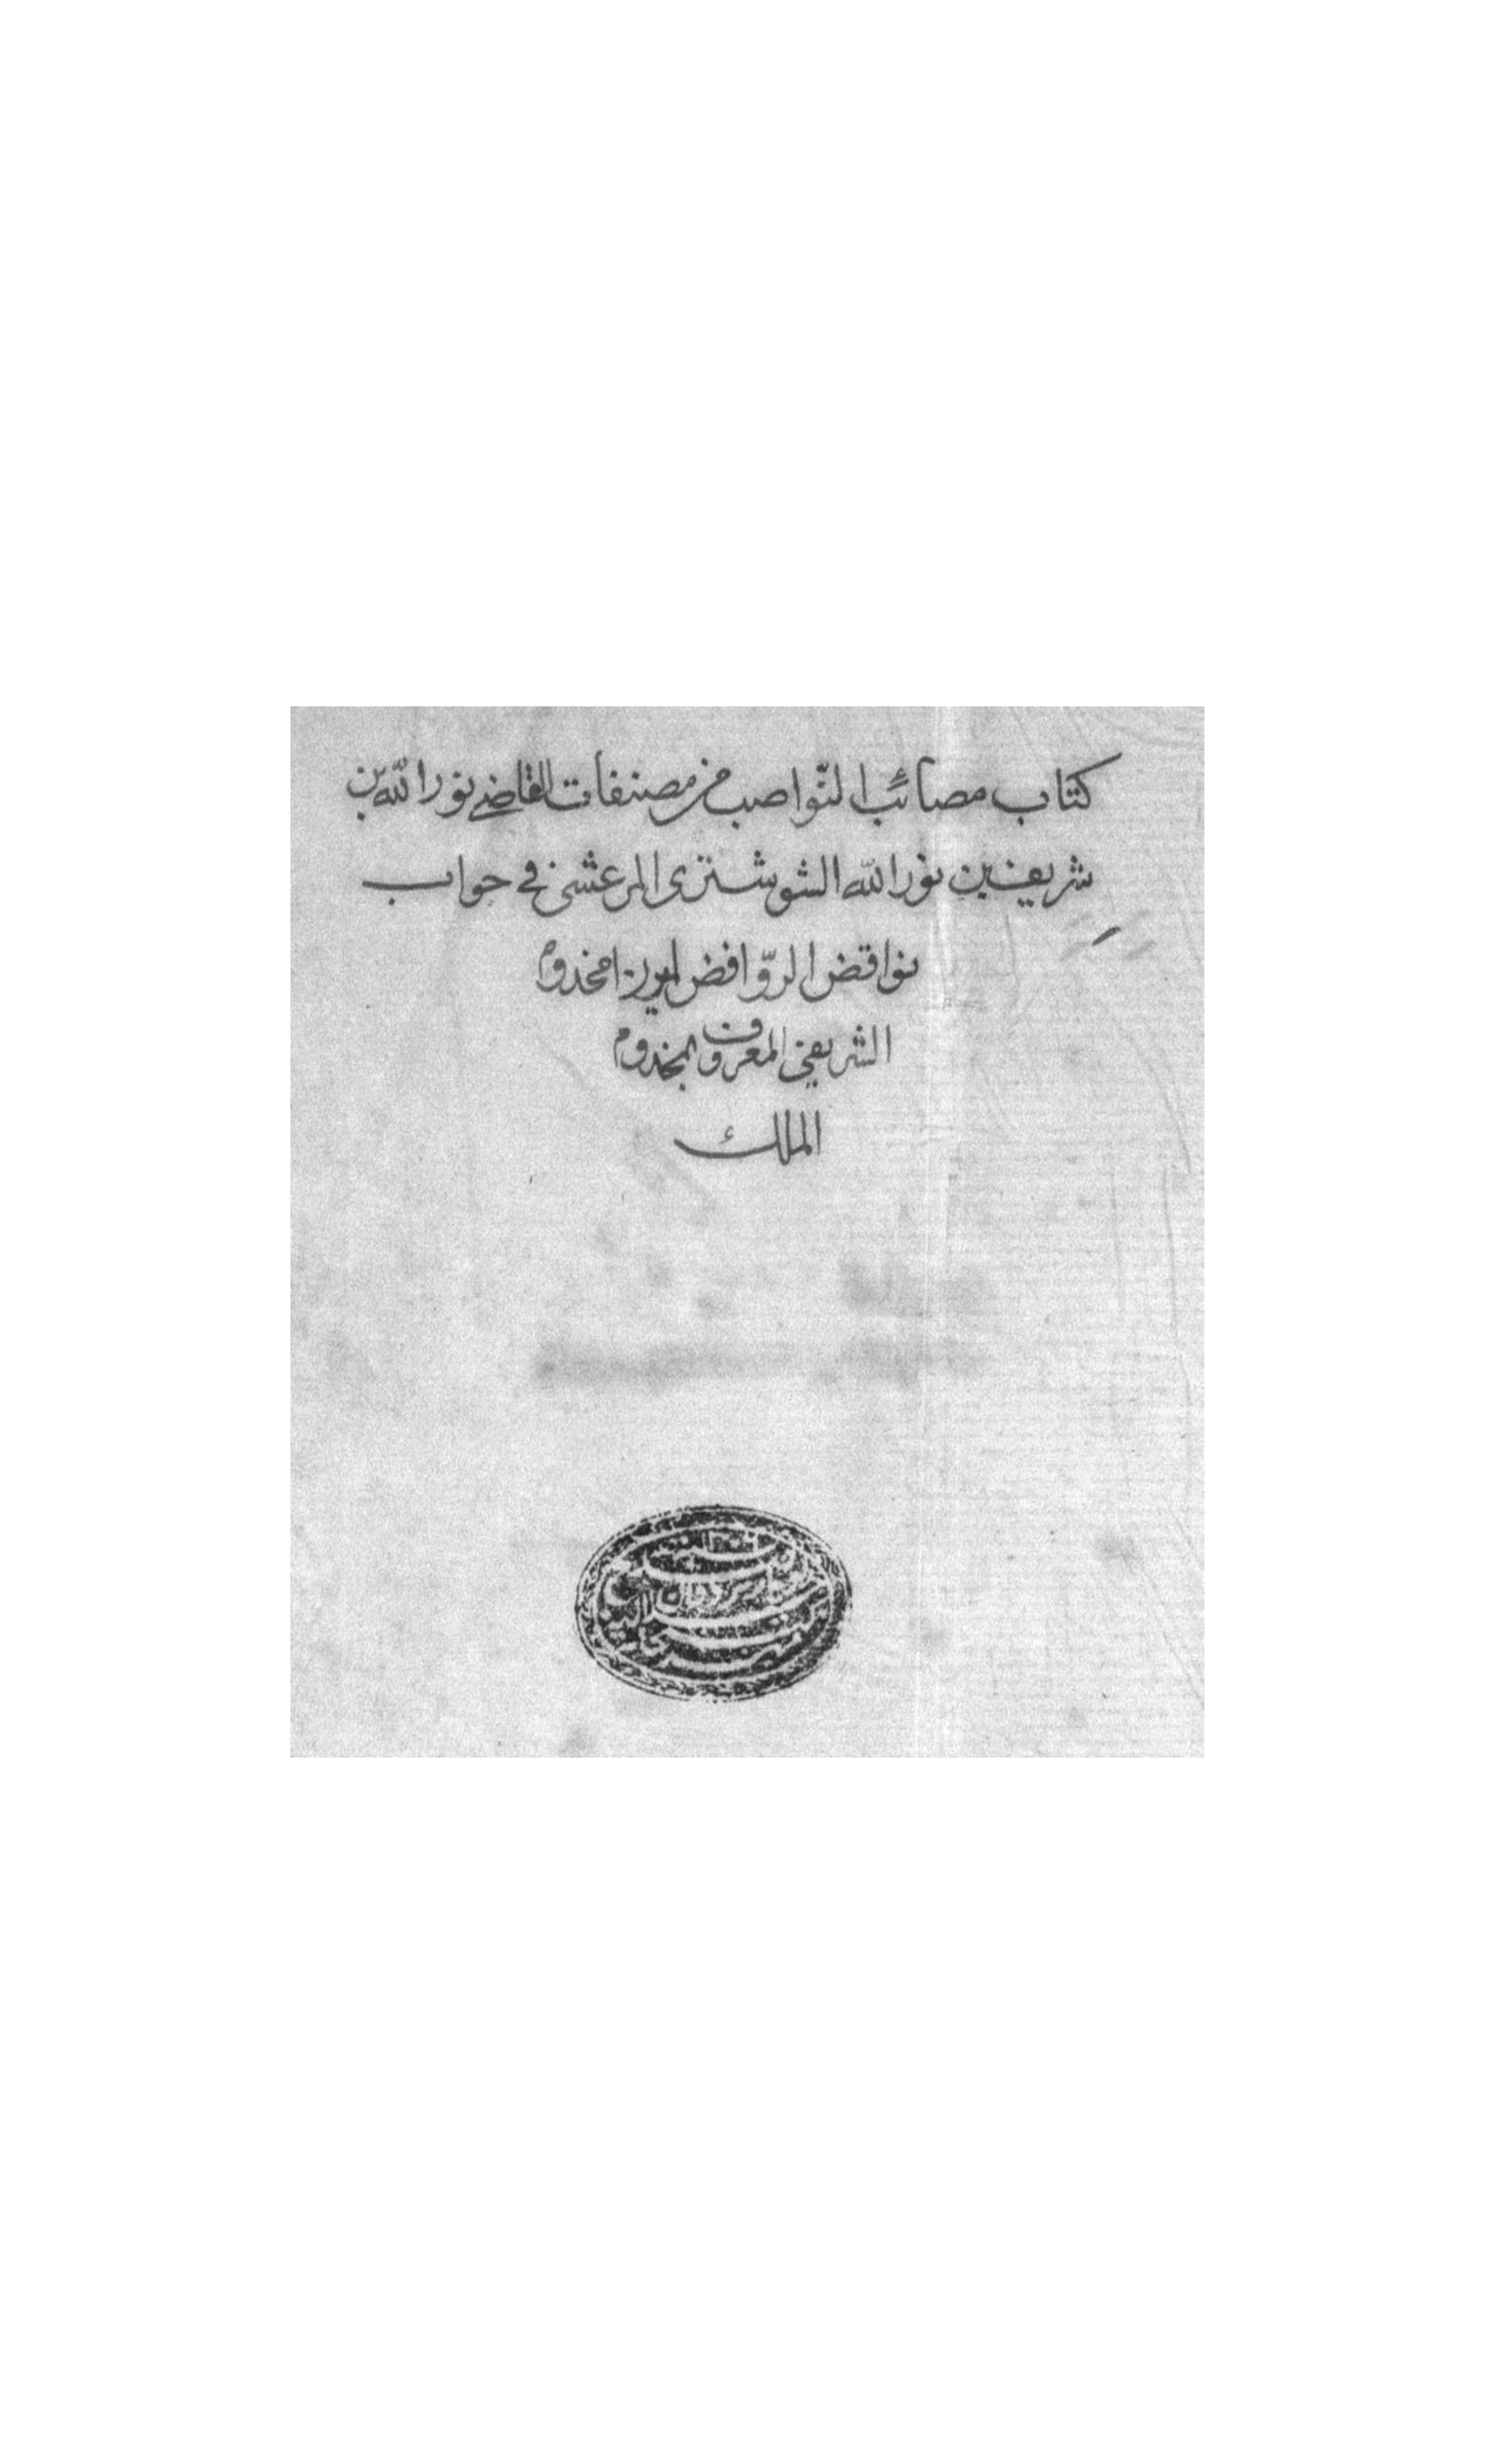 كتاب مصائب النّواصب من مصنفات القاضي نور الله بن
شريف بن نور الله الشوشتري المرعشي في جواب
نواقض الرّوافض لميرزا مخدوم
الشريفي المعروف بمخدوم
الملك